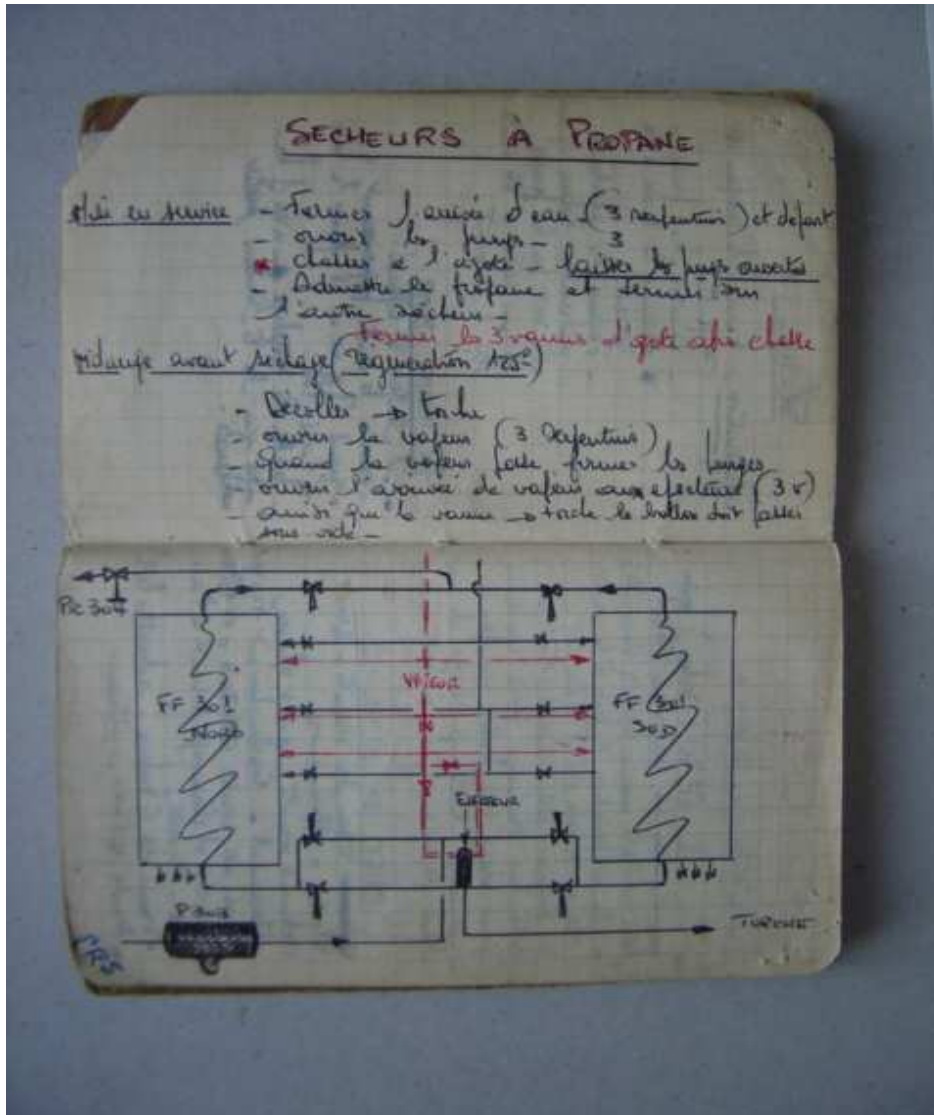 SECHEURS À PROPANE
Mise en service - Fermer l'arrivée d'eau (3 serpentins) et départ
- ouvrir les purges - 3
* chasser à l'azote - laisser les purges ouvertes
- Admettre le propane et fermer sur
l'autre sécheur -
Fermer les 3 vannes d'azote après chasse
vidange avant séchage (Regeneration 125°)
- Décoller → torche
- ouvrir la vapeur (3 serpentins)
- Quand la vapeur passe fermer les purges
ouvrir l'arrivée de vapeur aux ejecteurs (3 v)
- ainsi que la vanne → torche le ballon doit passer
sous vide -
Pic 304
VAPEUR
FF 301
NORD
FF 301
SUD
EJECTEUR
P 303
CRS
TORCHE